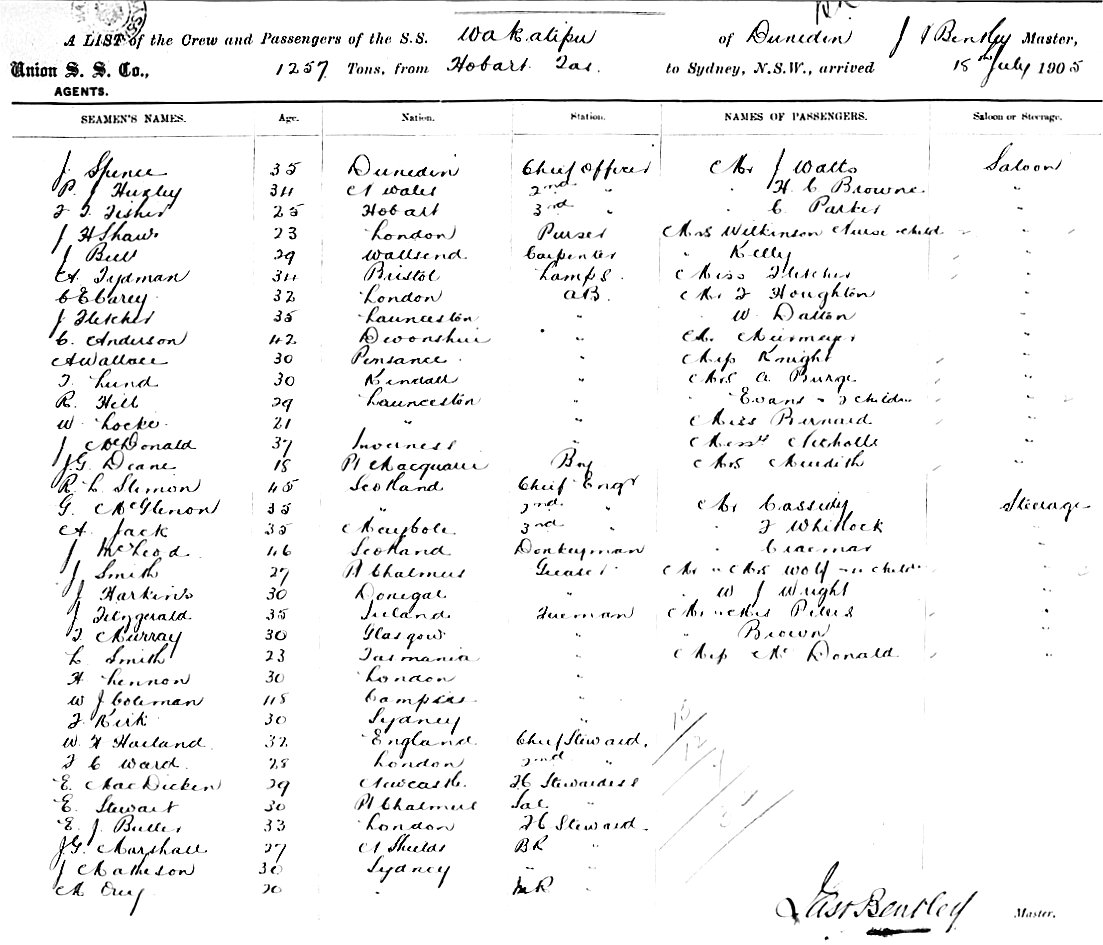 A LIST of the Crew and Passengers of the S.S. Wakatipu of Dunedin J Bentley Master,
Union S. S. Co., 1257 Tons, from Hobart Tas. to Sydney, N.S.W., arrived 18th July 1905
AGENTS.
SEAMEN'S NAMES. Age. Nation. Station. NAMES OF PASSENGERS. Saloon or Steerage.
J Spence 35 Dunedin Chief Officer Mr J Watts Saloon
P. J Huxley 34 N Wales 2nd " " H C Browne "
F. T. Fisher 25 Hobart 3rd " " C Parker "
J H Shaw 23 London Purser Mrs Wilkinson Nurse & child "
J Bell 29 Wallsend Carpenter " Kelly "
A. Tydman 34 Bristol Lamps. Miss Fletcher "
C E Carey 32 London AB. Mr F Houghton "
J Fletcher 35 Launceston " " W. Dalton "
C. Anderson 42 Devonshire " Mr "
A Wallace 30 Pensance " Miss Knight "
F. Lund 30 Kendall " Mrs A Purge "
R. Hill 29 Launceston " " Evans & 2 children "
W Locke 21 " " Miss Bernard "
J McDonald 37 Inverness " Nicholls "
J.G. Deane 18 Pt Macquarie Boy Mrs Meredith "
R. L. Slimon 45 Scotland Chief Engr
G. McGlenon 35 " 2nd " Mr Cassidy Steerage
A. Jack 35 Maybole 3rd " " F Whitlock "
J McLeod 46 Scotland Donkeyman " Craemar "
J Smith 27 Pt Chalmers Greaser Mr & Mrs Wolf & children "
J Harkins 30 Donegal " " W J Wright "
J Fitzgerald 35 Ireland Fireman Mr & Mrs "
F. Murray 30 Glasgow " " Brown "
L. Smith 23 Tasmania " Miss Mc Donald "
H Lennon 30 London "
W J Coleman 48 "
F Kirk 30 Sydney "
W. H Harland 32 England Chief Steward,
F C Ward. 28 London 2nd "
E. MacDicken 29 Newcastle FC Stewardess
E. Stewart 30 Pt Chalmers Sal "
E. J. Butler 33 London FC Steward.
J.G. Marshall 27 N Shields BR "
J Matheson 30 Sydney " "
M 20 " MR
Jas Bentley Master.